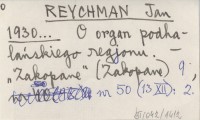 REYCHMAN Jan
1930... O organ podha-
lańskiego regjonu. —
"Zakopane" (Zakopane) 9,
nr 50 (13 XII): 2.